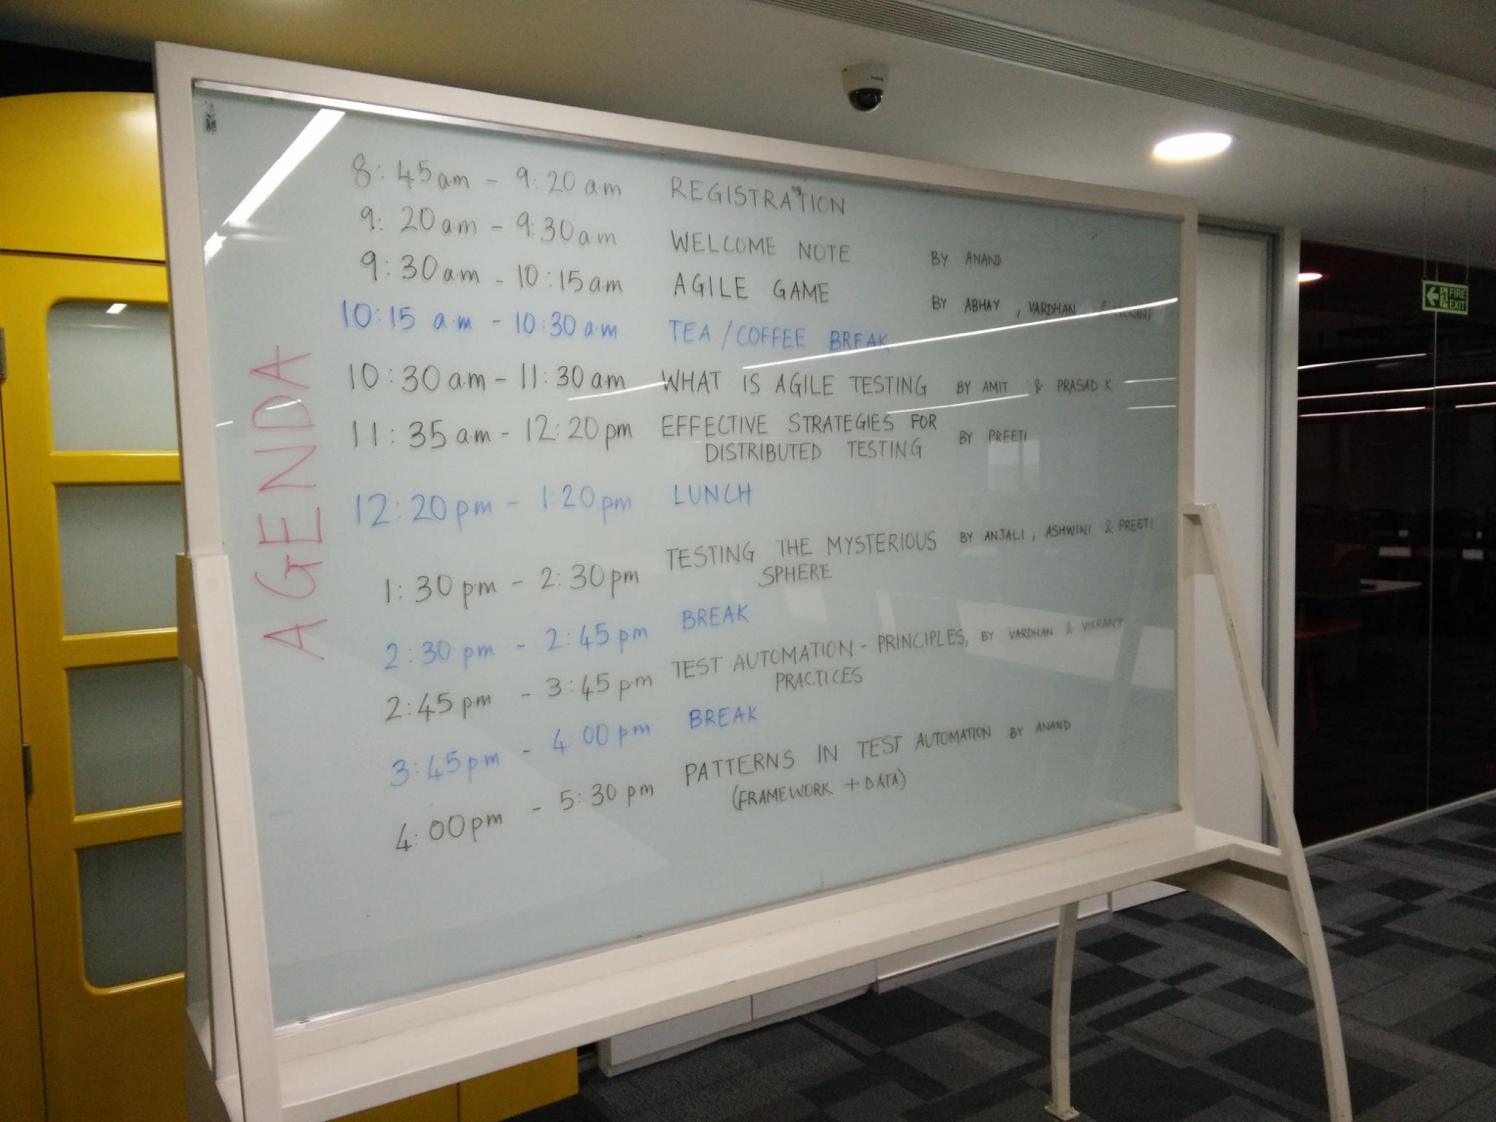 AGENDA
8:45am - 9:20am REGISTRATION
9:20am - 9:30am WELCOME NOTE BY ANAND
9:30am - 10:15am AGILE GAME BY ABHAY, VARDHAN &
10:15 am - 10:30am TEA/COFFEE BREAK
10:30am - 11:30am WHAT IS AGILE TESTING BY AMIT & PRASAD K
11:35am - 12:20pm EFFECTIVE STRATEGIES FOR BY PREETI
DISTRIBUTED TESTING
12:20pm - 1:20pm LUNCH
1:30pm - 2:30pm TESTING THE MYSTERIOUS BY ANJALI, ASHWINI & PREETI
SPHERE
2:30pm - 2:45pm BREAK
2:45pm - 3:45pm TEST AUTOMATION - PRINCIPLES, BY VARDHAN & VIKRANT
PRACTICES
3:45pm - 4:00pm BREAK
4:00pm - 5:30pm PATTERNS IN TEST AUTOMATION BY ANAND
(FRAMEWORK + DATA)
FIRE
EXIT